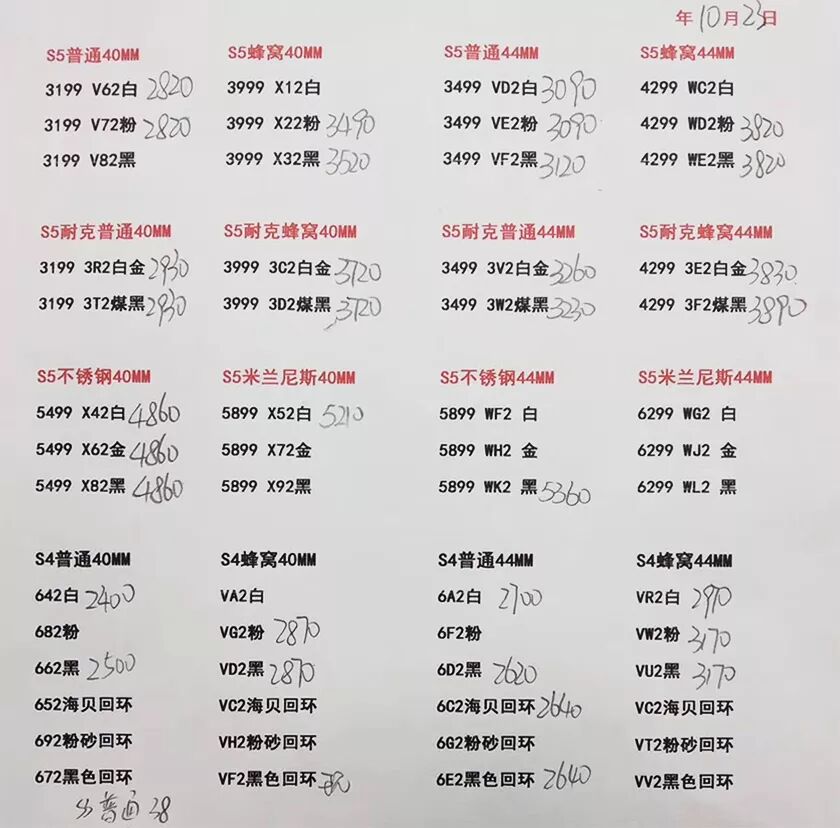 年10月23日
S5普通40MM
3199 V62白 2820
3199 V72粉 2820
3199 V82黑
S5蜂窝40MM
3999 X12白
3999 X22粉 3490
3999 X32黑 3520
S5普通44MM
3499 VD2白 3090
3499 VE2粉 3090
3499 VF2黑 3120
S5蜂窝44MM
4299 WC2白
4299 WD2粉 3820
4299 WE2黑 3820
S5耐克普通40MM
3199 3R2白金 2930
3199 3T2煤黑 2930
S5耐克蜂窝40MM
3999 3C2白金 3720
3999 3D2煤黑 3720
S5耐克普通44MM
3499 3V2白金 3260
3499 3W2煤黑 3230
S5耐克蜂窝44MM
4299 3E2白金 3830
4299 3F2煤黑 3890
S5不锈钢40MM
5499 X42白 4860
5499 X62金 4860
5499 X82黑 4860
S5米兰尼斯40MM
5899 X52白 5210
5899 X72金
5899 X92黑
S5不锈钢44MM
5899 WF2 白
5899 WH2 金
5899 WK2 黑 5360
S5米兰尼斯44MM
6299 WG2 白
6299 WJ2 金
6299 WL2 黑
S4普通40MM
642白 2400
682粉
662黑 2500
652海贝回环
692粉砂回环
672黑色回环
S4蜂窝40MM
VA2白
VG2粉 2870
VD2黑 2870
VC2海贝回环
VH2粉砂回环
VF2黑色回环
S4普通44MM
6A2白 2700
6F2粉
6D2黑 2620
6C2海贝回环 2640
6G2粉砂回环
6E2黑色回环 2640
S4蜂窝44MM
VR2白 2970
VW2粉 3170
VU2黑 3170
VC2海贝回环
VT2粉砂回环
VV2黑色回环
S3普通38